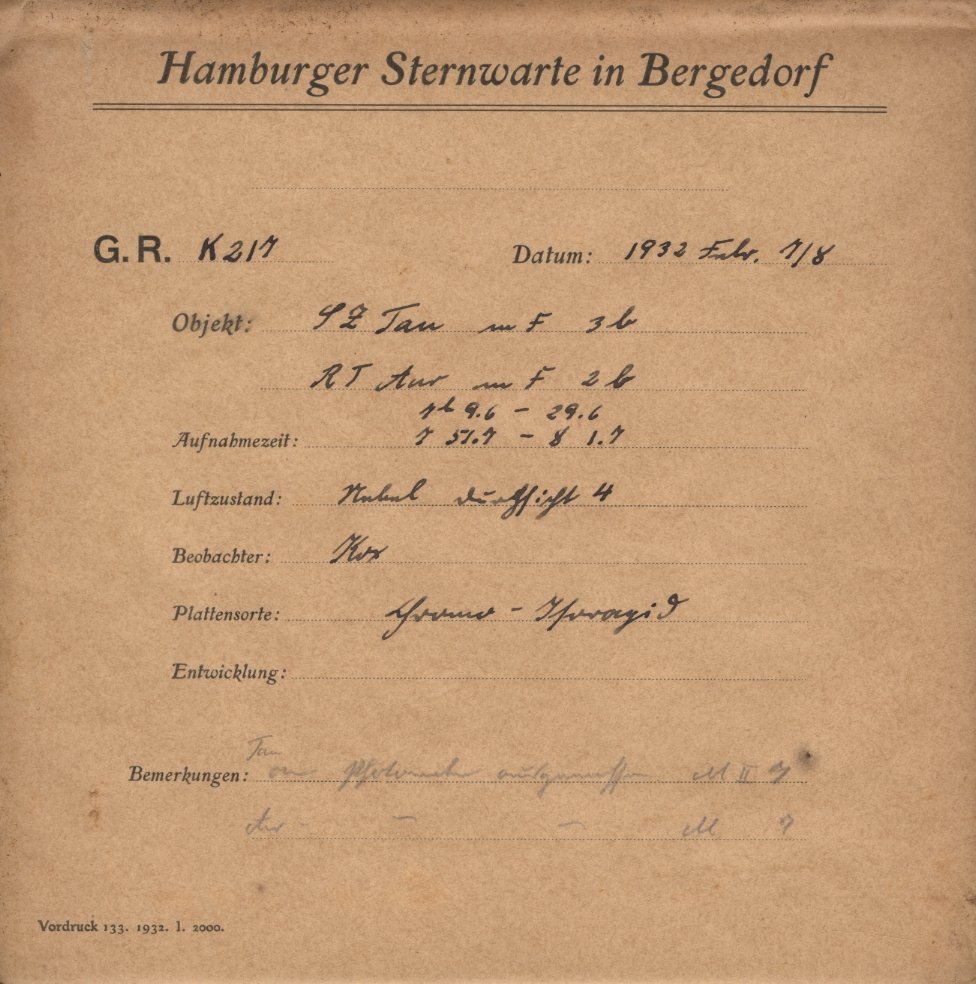 Hamburger Sternwarte in Bergedorf
G.R. K 217 Datum: 1932 Febr. 7/8
Objekt: SZ Tau m F 3 b
RT Aur m F 2 b
7h 9.6 - 29.6
Aufnahmezeit: 7 51.7 - 8 1.7
Luftzustand: Nebel Durchsicht 4
Beobachter: Kox
Plattensorte: Chromo - Isorapid
Entwicklung:
Tau
Bemerkungen: ausgemessen M II 7
Aur - - M 7
Vordruck 133. 1932. I. 2000.